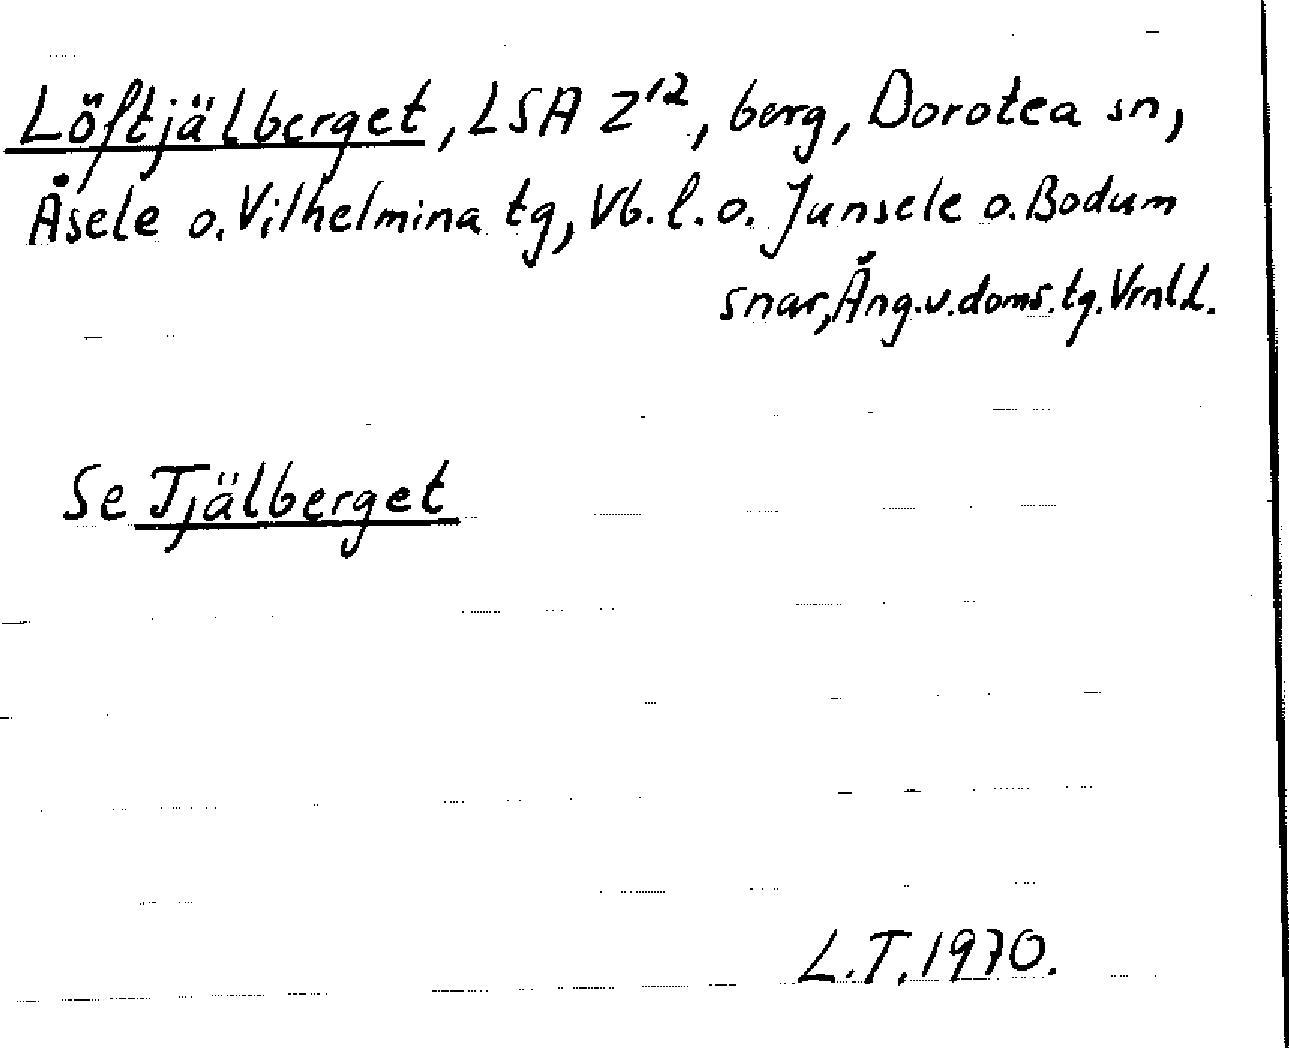 Löftjälberget, LSA Z¹², berg, Dorotea sn,
Åsele o. Vilhelmina tg, Vb. l. o. Junsele o. Bodum
snar, Ång. v. doms. tg. Vrnl L.
Se Tjälberget
L.T. 1970.